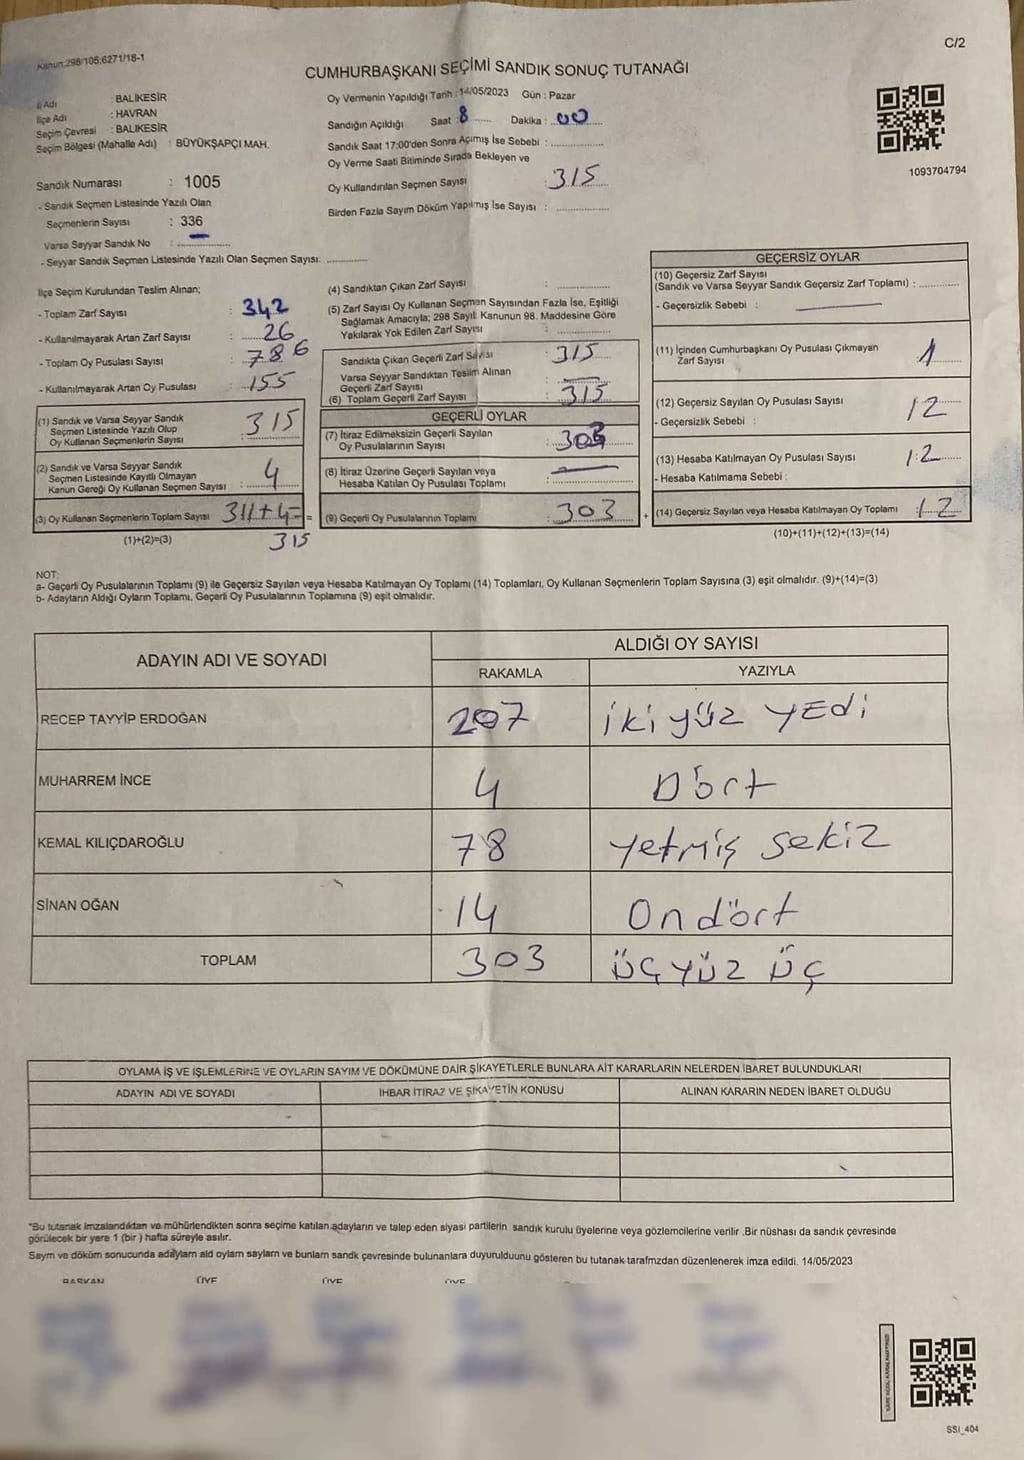 Kanun:298/105,6271/18-1
C/2
CUMHURBAŞKANI SEÇİMİ SANDIK SONUÇ TUTANAĞI
İl Adı : BALIKESİR
İlçe Adı : HAVRAN
Seçim Çevresi : BALIKESİR
Seçim Bölgesi (Mahalle Adı) : BÜYÜKŞAPÇI MAH.
Sandık Numarası : 1005
- Sandık Seçmen Listesinde Yazılı Olan
Seçmenlerin Sayısı : 336
Varsa Seyyar Sandık No :
- Seyyar Sandık Seçmen Listesinde Yazılı Olan Seçmen Sayısı:
Oy Vermenin Yapıldığı Tarih : 14/05/2023 Gün : Pazar
Sandığın Açıldığı Saat : 8 Dakika : 00
Sandık Saat 17:00'den Sonra Açımış İse Sebebi :
Oy Verme Saati Bitiminde Sırada Bekleyen ve
Oy Kullandırılan Seçmen Sayısı : 315
Birden Fazla Sayım Döküm Yapılmış İse Sayısı :
1093704794
İlçe Seçim Kurulundan Teslim Alınan;
- Toplam Zarf Sayısı : 342
- Kullanılmayarak Artan Zarf Sayısı : 26
- Toplam Oy Pusulası Sayısı : 786
- Kullanılmayarak Artan Oy Pusulası : 155
(1) Sandık ve Varsa Seyyar Sandık
Seçmen Listesinde Yazılı Olup
Oy Kullanan Seçmenlerin Sayısı : 315
(2) Sandık ve Varsa Seyyar Sandık
Seçmen Listesinde Kayıtlı Olmayan
Kanun Gereği Oy Kullanan Seçmen Sayısı : 4
(3) Oy Kullanan Seçmenlerin Toplam Sayısı 311+4=
(1)+(2)=(3) 315
(4) Sandıktan Çıkan Zarf Sayısı :
(5) Zarf Sayısı Oy Kullanan Seçmen Sayısından Fazla İse, Eşitliği
Sağlamak Amacıyla; 298 Sayılı Kanunun 98. Maddesine Göre
Yakılarak Yok Edilen Zarf Sayısı :
Sandıkta Çıkan Geçerli Zarf Sayısı : 315
Varsa Seyyar Sandıktan Teslim Alınan
Geçerli Zarf Sayısı :
(6) Toplam Geçerli Zarf Sayısı : 315
GEÇERLİ OYLAR
(7) İtiraz Edilmeksizin Geçerli Sayılan
Oy Pusulalarının Sayısı : 303
(8) İtiraz Üzerine Geçerli Sayılan veya
Hesaba Katılan Oy Pusulası Toplamı :
= (9) Geçerli Oy Pusulalarının Toplamı : 303 +
GEÇERSİZ OYLAR
(10) Geçersiz Zarf Sayısı
(Sandık ve Varsa Seyyar Sandık Geçersiz Zarf Toplamı) :
- Geçersizlik Sebebi :
(11) İçinden Cumhurbaşkanı Oy Pusulası Çıkmayan
Zarf Sayısı : 1
(12) Geçersiz Sayılan Oy Pusulası Sayısı 12
- Geçersizlik Sebebi :
(13) Hesaba Katılmayan Oy Pusulası Sayısı : 12
- Hesaba Katılmama Sebebi :
(14) Geçersiz Sayılan veya Hesaba Katılmayan Oy Toplamı : 12
(10)+(11)+(12)+(13)=(14)
NOT:
a- Geçerli Oy Pusulalarının Toplamı (9) ile Geçersiz Sayılan veya Hesaba Katılmayan Oy Toplamı (14) Toplamları, Oy Kullanan Seçmenlerin Toplam Sayısına (3) eşit olmalıdır. (9)+(14)=(3)
b- Adayların Aldığı Oyların Toplamı, Geçerli Oy Pusulalarının Toplamına (9) eşit olmalıdır.
ADAYIN ADI VE SOYADI ALDIĞI OY SAYISI
RAKAMLA YAZIYLA
RECEP TAYYİP ERDOĞAN 207 iki yüz yEdi
MUHARREM İNCE 4 Dört
KEMAL KILIÇDAROĞLU 78 yetmiş sekiz
SİNAN OĞAN 14 Ondört
TOPLAM 303 üçyüz üç
OYLAMA İŞ VE İŞLEMLERİNE VE OYLARIN SAYIM VE DÖKÜMÜNE DAİR ŞİKAYETLERLE BUNLARA AİT KARARLARIN NELERDEN İBARET BULUNDUKLARI
ADAYIN ADI VE SOYADI İHBAR İTİRAZ VE ŞİKAYETİN KONUSU ALINAN KARARIN NEDEN İBARET OLDUĞU
*Bu tutanak imzalandıktan ve mühürlendikten sonra seçime katılan adayların ve talep eden siyasi partilerin sandık kurulu üyelerine veya gözlemcilerine verilir .Bir nüshası da sandık çevresinde
görülecek bir yere 1 (bir ) hafta süreyle asılır.
Sayım ve döküm sonucunda adayların ald oyların sayların ve bunların sandk çevresinde bulunanlara duyurulduunu gösteren bu tutanak tarafmzdan düzenlenerek imza edildi. 14/05/2023
BAŞKAN ÜYE ÜYE ÜYE
SSI_404